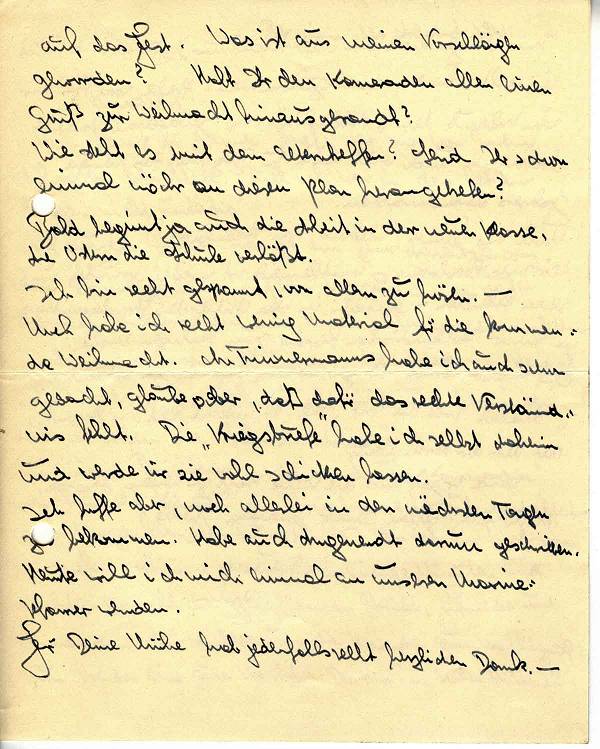 auf das Fest. Was ist aus meinen Vorschlägen
geworden? Habt Ihr den Kameraden allen einen
Gruß zur Weihnacht hinausgesandt?
Wie steht es mit dem Elterntreffen? Seid Ihr schon
einmal näher an diesen Plan herangetreten?
Bald beginnt ja auch die Arbeit in der neuen Klasse,
die Ostern die Schule verläßt.
Ich bin recht gespannt, von allem zu hören. —
Noch habe ich recht wenig Material für die kommen-
de Weihnacht. An Timmermanns habe ich auch schon
gedacht, glaube aber, daß dafür das rechte Verständ-
nis fehlt. Die „Kriegsbriefe" habe ich selbst daheim
und werde mir sie wohl schicken lassen.
Ich hoffe aber, noch allerlei in den nächsten Tagen
zu bekommen. Habe auch drum geschrieben.
Heute will ich mich einmal an unseren Marine-
pfarrer wenden.
Für Deine Mühe hab jedenfalls herzlichen Dank. —